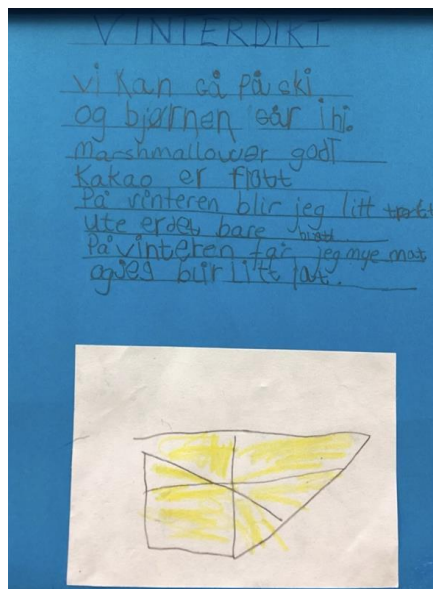 VINTERDIKT
Vi kan gå på ski
og bjørnen går i hi.
Marshmallower godt
Kakao er flott
På vinteren blir jeg litt
ute er det bare
På vinteren får jeg mye mat
og jeg blir litt lat.